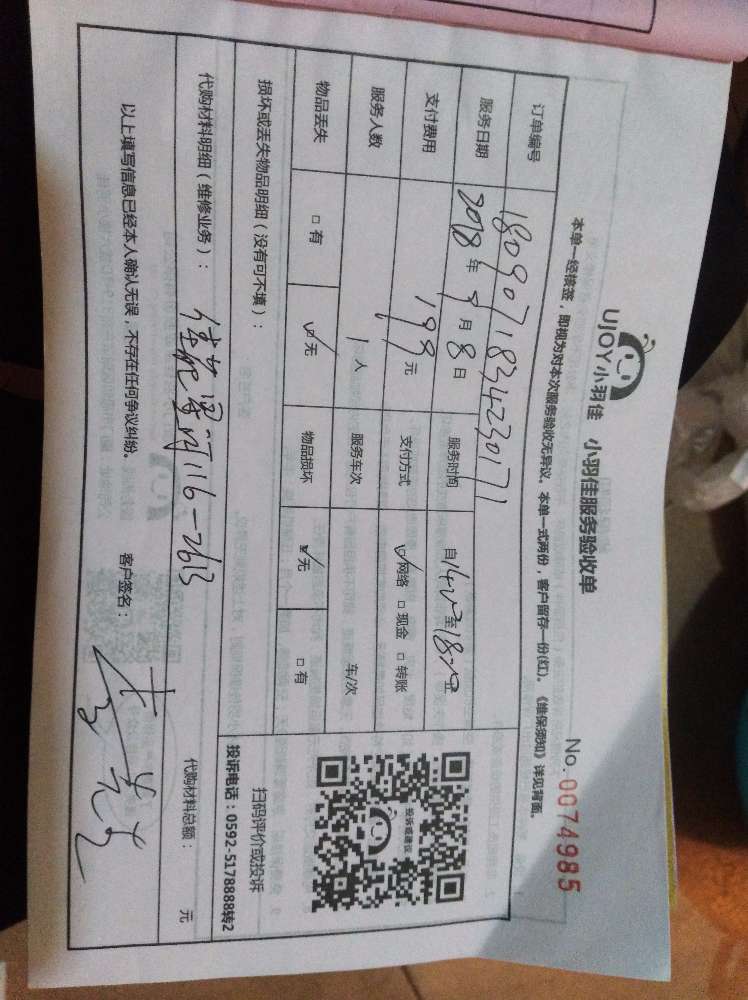 UJOY小羽佳 小羽佳服务验收单
No. 0074985
本单一经核签，即视为对本次服务验收无异议。本单一式两份，客户留存一份(红)。《维保须知》详见背面。
订单编号 1809071834230171
服务日期 2018 年 9 月 8 日 服务时间 自 14:00 至 18:00
支付费用 199 元 支付方式 ☑网络 □现金 □转账
服务人数 1 人 服务车次 车/次
物品丢失 □有 ☑无 物品损坏 ☑无 □有
投诉或建议
扫码评价或投诉
投诉电话：0592-5178888转2
损坏或丢失物品明细（没有可不填）：
代购材料明细（维修业务）： 116-2613
代购材料总额： 元
以上填写信息已经本人确认无误，不存在任何争议纠纷。 客户签名：